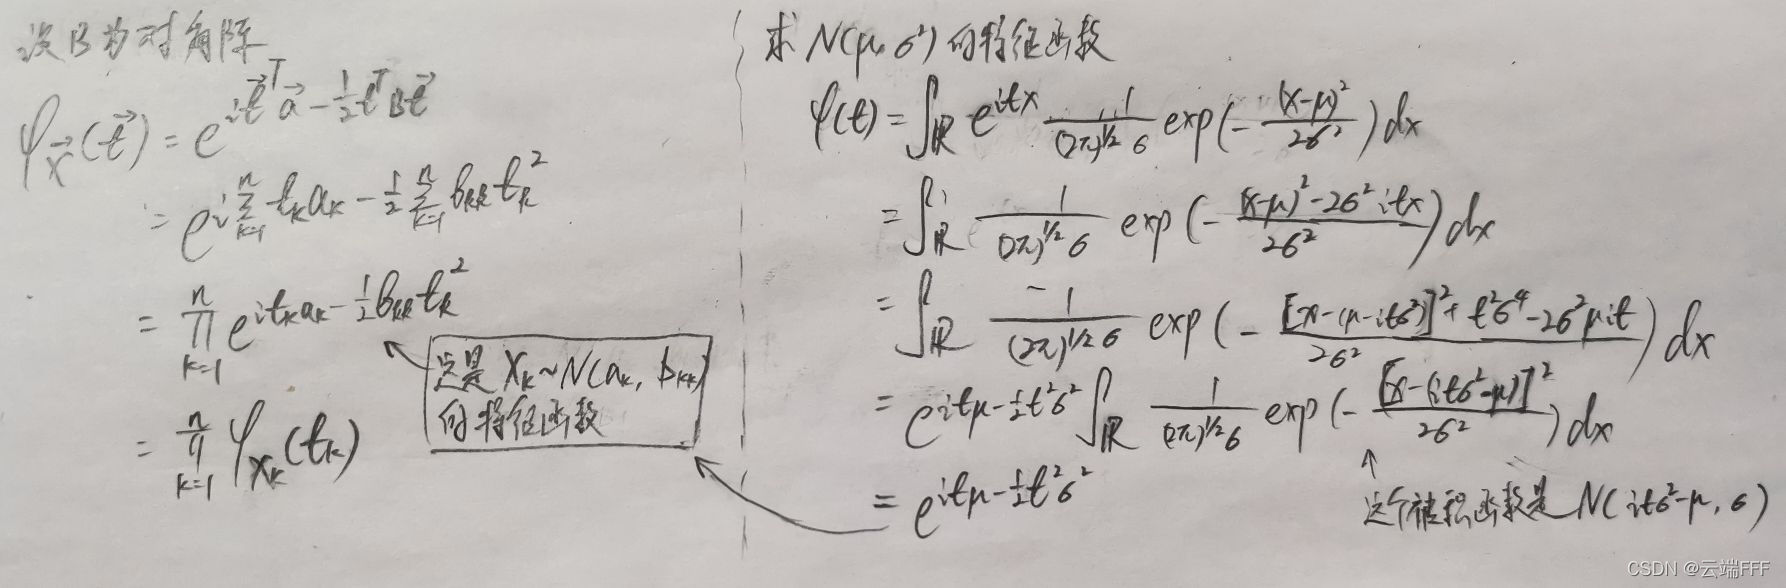 设B为对角阵
φ_{\vec{X}}(\vec{t}) = e^{i\vec{t}^T\vec{a} - \frac{1}{2}\vec{t}^T B\vec{t}}
= e^{i\sum_{k=1}^{n} t_k a_k - \frac{1}{2}\sum_{k=1}^{n} b_{kk} t_k^2}
= \prod_{k=1}^{n} e^{it_k a_k - \frac{1}{2} b_{kk} t_k^2}
这是 X_k ~ N(a_k, b_{kk})
的特征函数
= \prod_{k=1}^{n} φ_{X_k}(t_k)
求 N(μ, σ²) 的特征函数
φ(t) = ∫_ℝ e^{itx} \frac{1}{(2π)^{1/2} σ} exp(-\frac{(x-μ)^2}{2σ^2}) dx
= ∫_ℝ \frac{1}{(2π)^{1/2} σ} exp(-\frac{(x-μ)^2 - 2σ^2 itx}{2σ^2}) dx
= ∫_ℝ \frac{1}{(2π)^{1/2} σ} exp(-\frac{[x-(μ-itσ^2)]^2 + t^2σ^4 - 2σ^2 μit}{2σ^2}) dx
= e^{itμ - \frac{1}{2}t^2σ^2} ∫_ℝ \frac{1}{(2π)^{1/2} σ} exp(-\frac{[x-(itσ^2-μ)]^2}{2σ^2}) dx
这个被积函数是 N(itσ²-μ, σ)
= e^{itμ - \frac{1}{2}t^2σ^2}
CSDN @云端FFF